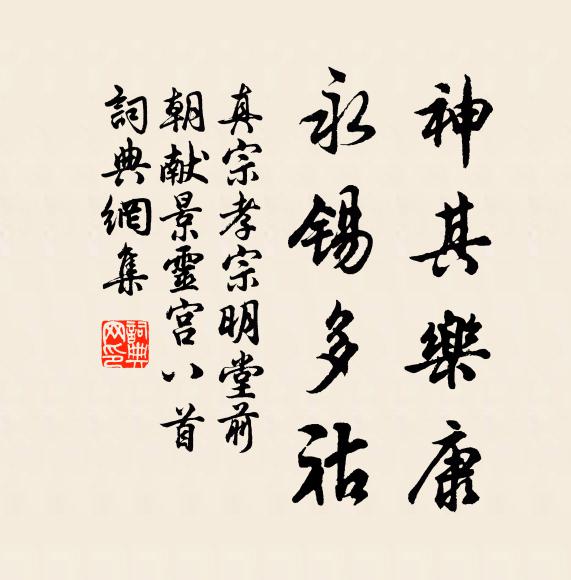 神其樂康
永錫多祜
真宗孝宗明堂前
朝献景靈宮八首
詞典網集
詞典
网印